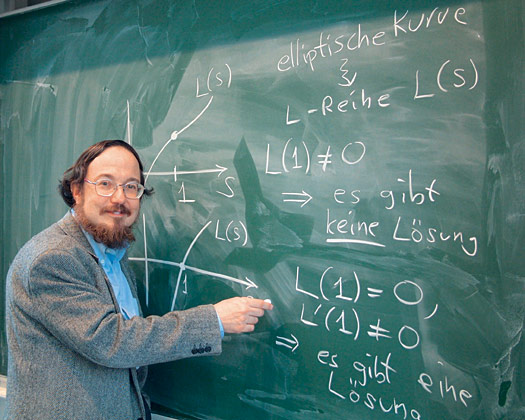 elliptische Kurve
L-Reihe L(s)
L(s)
1 S
L(s)
1
L(1) ≠ 0
⇒ es gibt
keine Lösung
L(1) = 0,
L'(1) ≠ 0
⇒ es gibt eine
Lösung